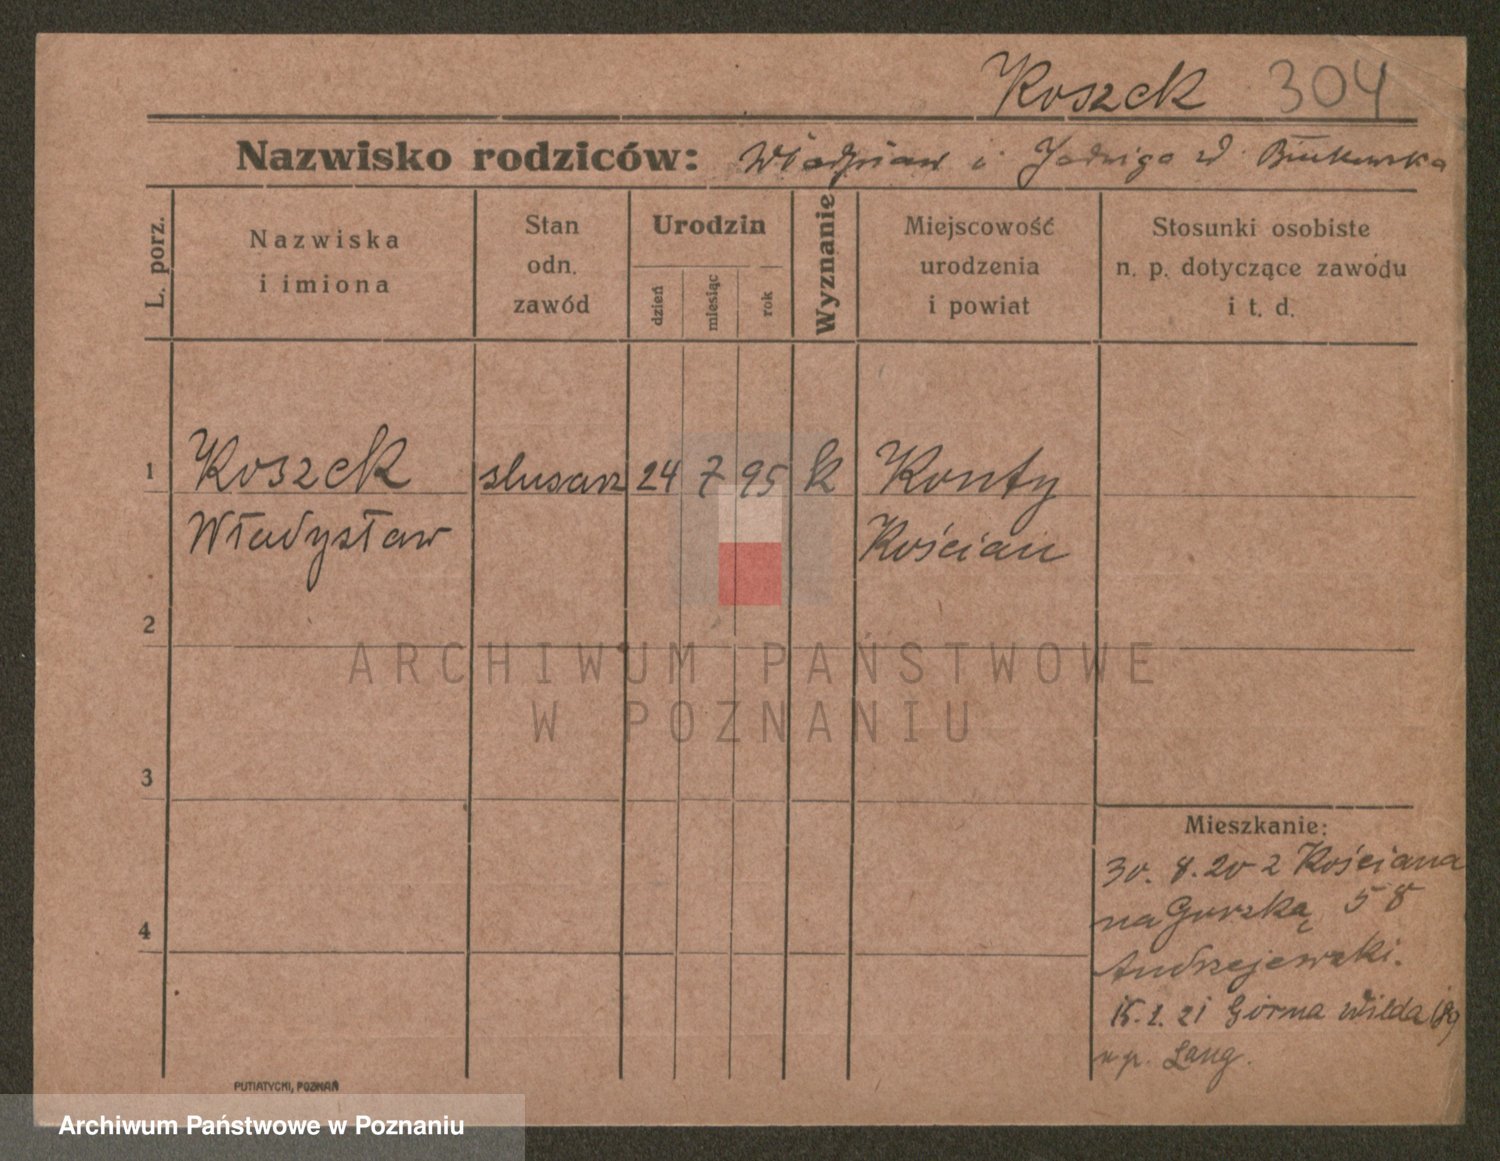 Koszek 304
Nazwisko rodziców: Władysław i Jadwiga
L. porz.
Nazwiska
i imiona
Stan
odn.
zawód
Urodzin
dzień
miesiąc
rok
Wyznanie
Miejscowość
urodzenia
i powiat
Stosunki osobiste
n. p. dotyczące zawodu
i t. d.
1 Koszek slusarz 24 7 95 k Konty
Władysław Kościan
2
ARCHIWUM PAŃSTWOWE
W POZNANIU
3
Mieszkanie:
30. 8. 20 z Kościana
na Gurską 58
4
Andrzejewski.
21 Górna Wilda
Lang.
PUTIATYCKI, POZNAŃ
Archiwum Państwowe w Poznaniu